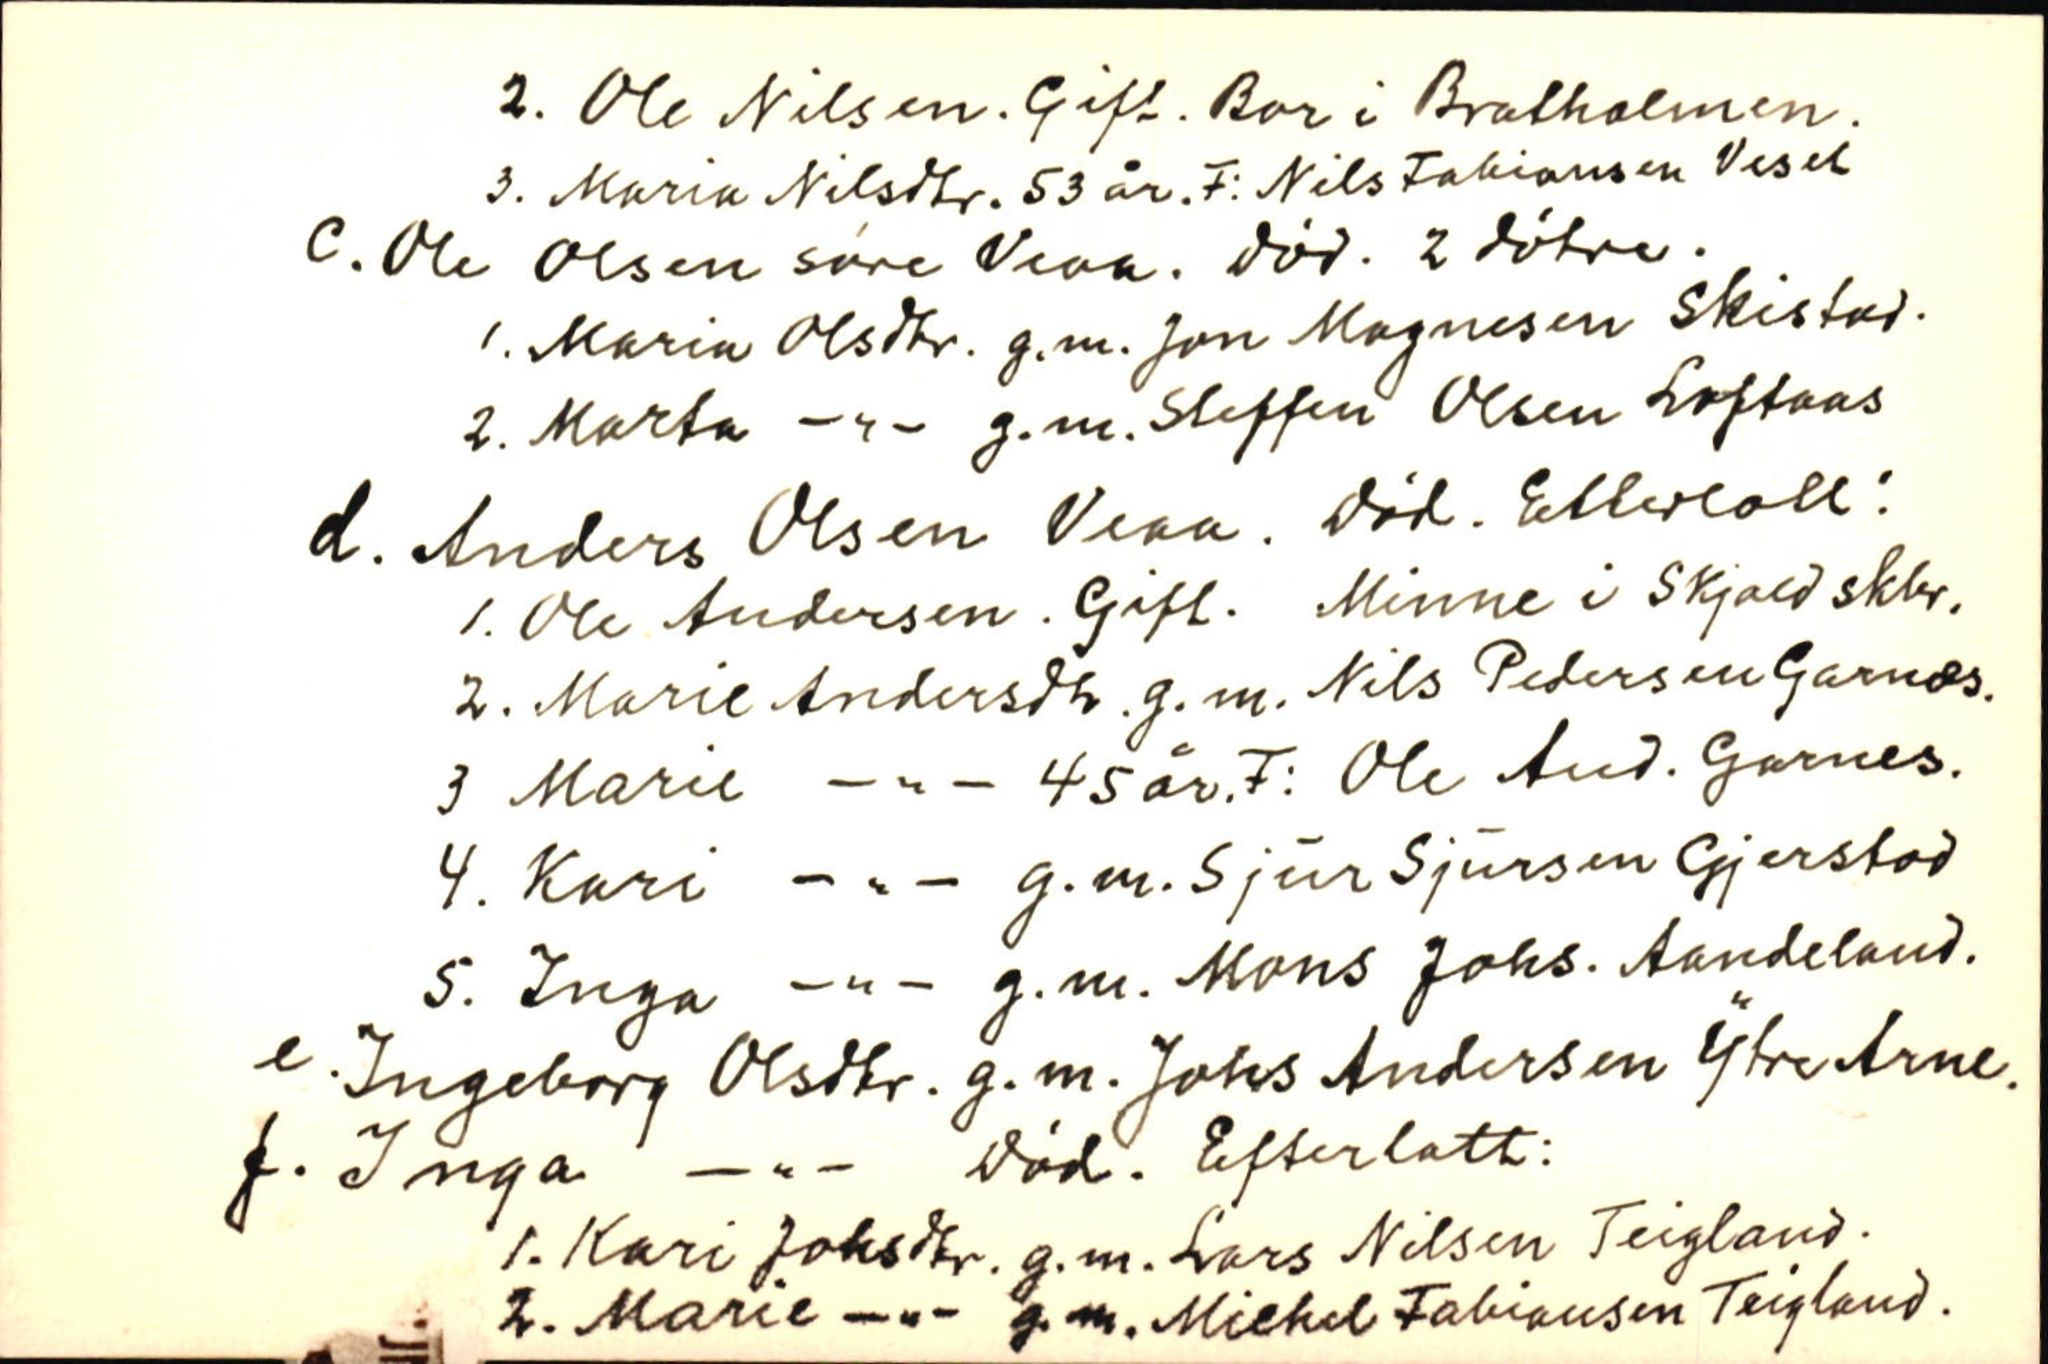 2. Ole Nilsen. Gift. Bor i Bratholmen.
3. Maria Nilsdtr. 53 år. F: Nils Fabiansen Veset
C. Ole Olsen søre Veaa. död. 2 dötre.
1. Maria Olsdtr. g.m. Jon Magnesen Skistad.
2. Marta —"— g.m. Steffen Olsen Loftaas
d. Anders Olsen Veaa. död. Etterlott:
1. Ole Andersen. Gift. Minne i Skjold skbr.
2. Marie Andersdtr. g.m. Nils Pedersen Garnæs.
3 Marie —"— 45 år. F: Ole And. Garnes.
4. Kari —"— g.m. Sjūr Sjūrsen Gjerstad
5. Inga —"— g.m. Mons Johs. Aandeland.
e. Ingeborg Olsdtr. g.m. Johs Andersen Ÿtre Arne.
f. Inga —"— död. Efterlatt:
1. Kari Johsdtr. g.m. Lars Nilsen Teigland.
2. Marie —"— g.m. Michel Fabiansen Teigland.